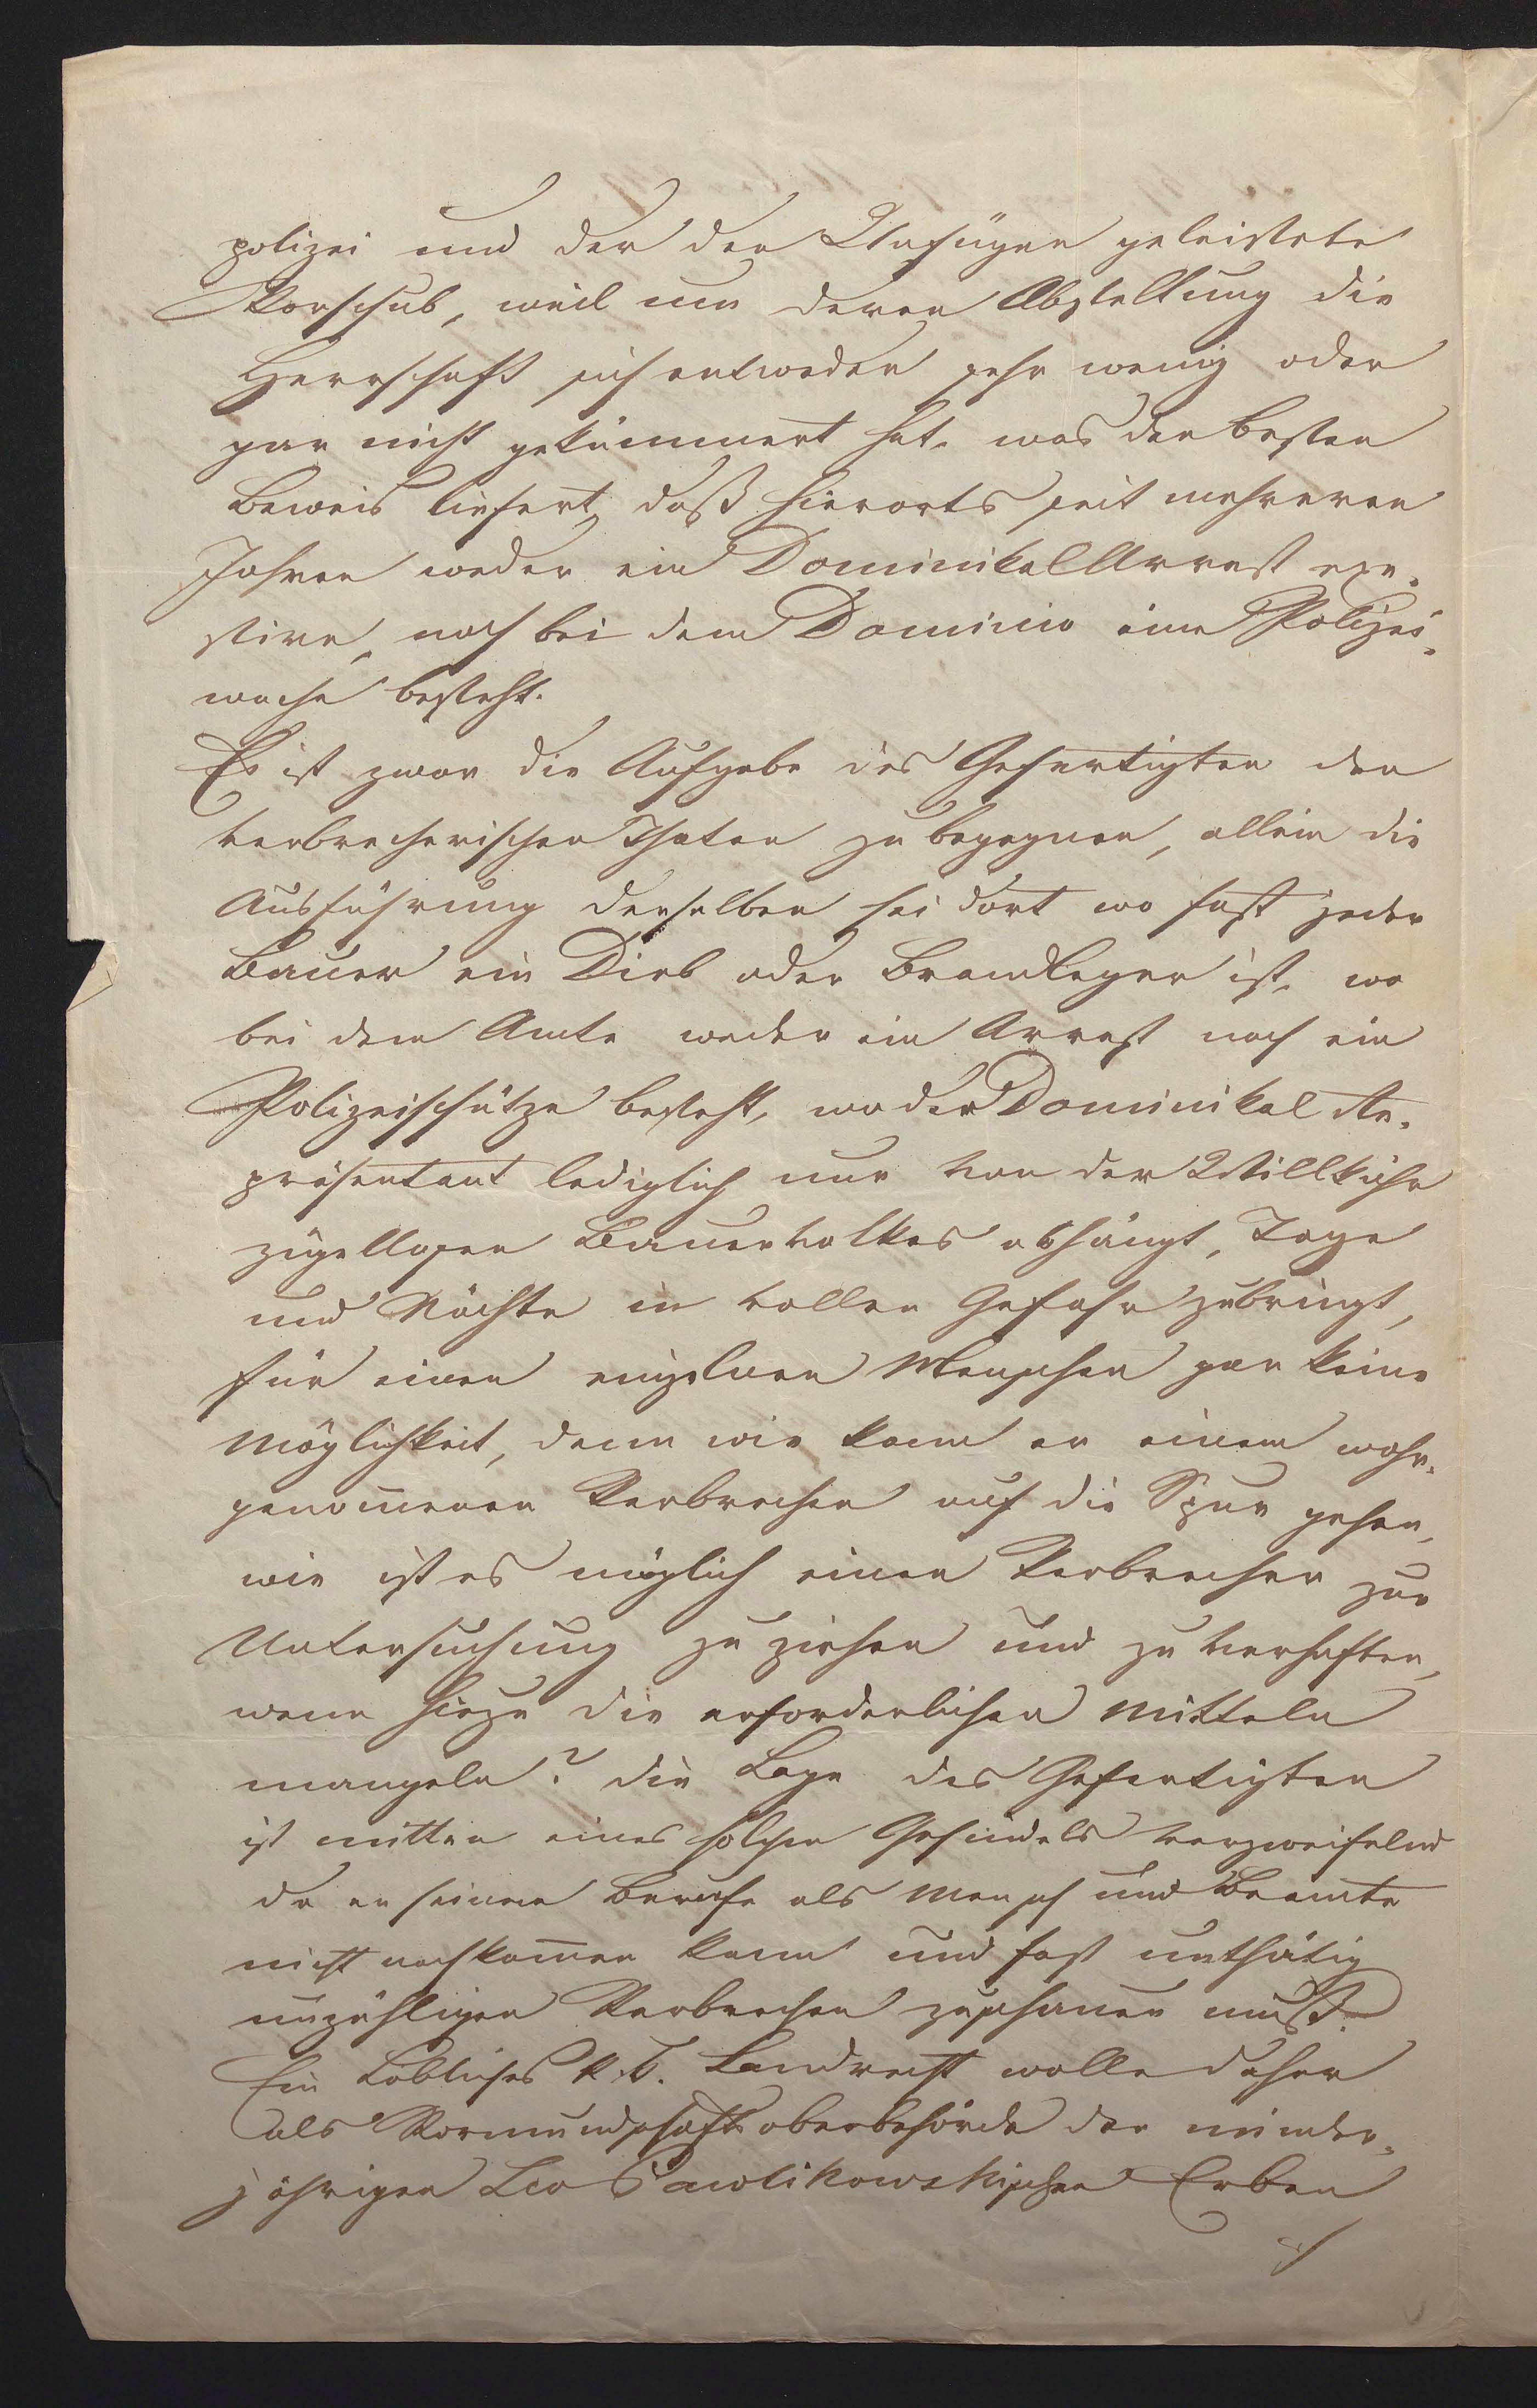 polizei und der den Unfügen geleistete
Vorschub, weil um deren Abstellung die
Herrschaft sich entweder sehr wenig oder
gar nicht gekümmert hat, was den besten
Beweis liefert, daß hierorts seit mehreren
Jahren weder ein Dominikal Arrest exi-
stire, noch bei dem Dominio eine Polizei-
wache besteht.
Es ist zwar die Aufgabe des Gefertigten den
verbrecherischen Thaten zu begegnen, allein die
Ausführung derselben sei dort wo fast jeder
Bauer ein Dieb oder Brandleger ist, wo
bei dem Amte weder ein Arrest noch ein
Polizeischütze besteht, wo der Dominikal Re-
präsentant lediglich nur von der Willkühr
zügellosen Bauervolkes abhängt, Tage
und Nächte in voller Gefahr zubringt,
für einen einzelnen Menschen gar keine
Möglichkeit, denn wie kann er einem wahr-
genommenen Verbrechen auf die Spur gehen,
wie ist es möglich einen Verbrecher zur
Untersuchung zu ziehen und zu verhaften,
wenn hiezu die erforderlichen Mitteln
mangeln? die Lage des Gefertigten
ist mitten eines solchen Gesindels verzweifelnd
da er seinem Berufe als Mensch und Beamte
nicht nachkommen kann und fast unthätig
unzähligen Verbrechen zuschauen muß.
Ein Löbliches k. k. Landrecht wolle daher
als Vormundschaftsoberbehörde der minder-
jährigen Leo Pawlikowskischen Erben